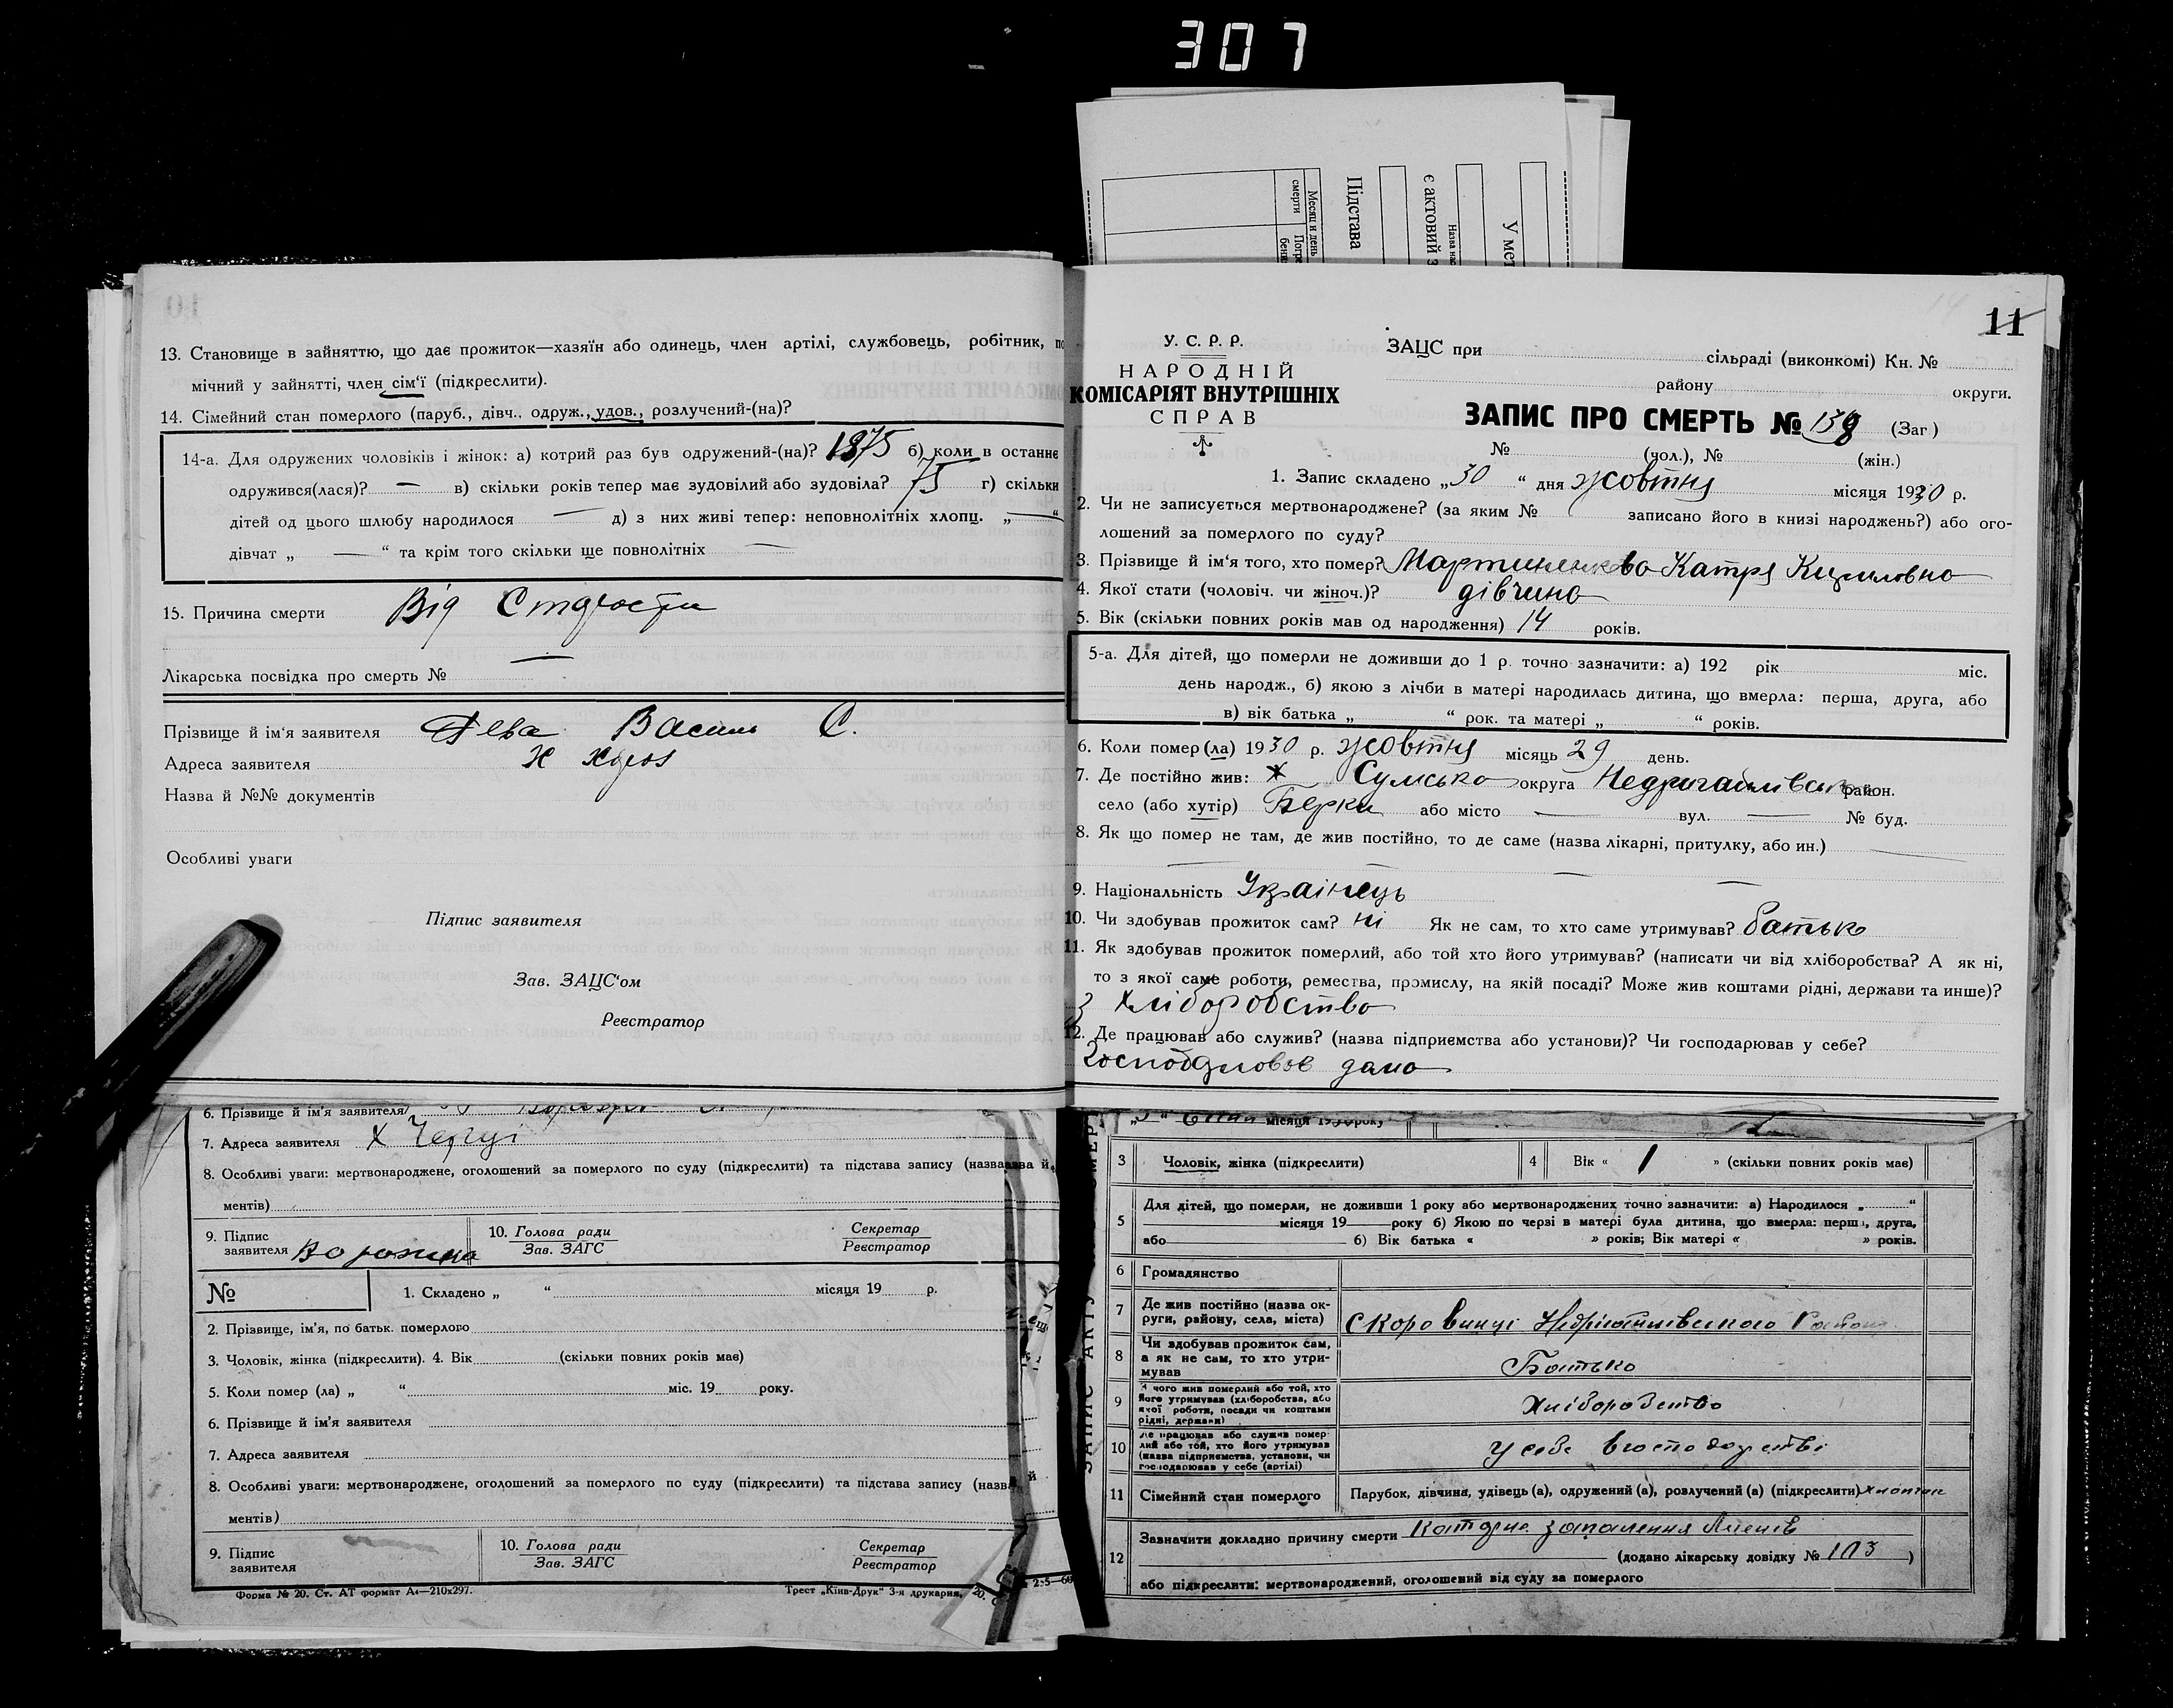 307
Месяц и день смерти
Погре
бени
Підстава
є актовий з
Назва нас
У мет
13. Становище в зайняттю, що дає прожиток—хазяїн або одинець, член артілі, службовець, робітник, по
мічний у зайнятті, член сім'ї (підкреслити).
14. Сімейний стан померлого (паруб., дівч., одруж., удов., розлучений-(на)?
14-а. Для одружених чоловіків і жінок: а) котрий раз був одружений-(на)? 1875 б) коли в останнє
одружився(лася)? — в) скільки років тепер має зудовілий або зудовіла? 75 г) скільки
дітей од цього шлюбу народилося — д) з них живі тепер: неповнолітніх хлопц. „ — “
дівчат „ — “ та крім того скільки ще повнолітніх —
15. Причина смерти Від Старости
Лікарська посвідка про смерть № —
Прізвище й ім'я заявителя Дева Василь С.
Адреса заявителя Х
Назва й №№ документів
Особливі уваги
Підпис заявителя
Зав. ЗАЦС'ом
Реєстратор
6. Прізвище й ім'я заявителя
7. Адреса заявителя х
8. Особливі уваги: мертвонароджене, оголошений за померлого по суду (підкреслити) та підстава запису (назва й
ментів)
9. Підпис заявителя 10. Голова ради Зав. ЗАГС Секретар Реєстратор
№ 1. Складено „ “ місяця 19 р.
2. Прізвище, ім'я, по батьк. померлого
3. Чоловік, жінка (підкреслити). 4. Вік (скільки повних років має)
5. Коли помер (ла) „ “ міс. 19 року.
6. Прізвище й ім'я заявителя
7. Адреса заявителя
8. Особливі уваги: мертвонароджене, оголошений за померлого по суду (підкреслити) та підстава запису (назв й
ментів)
9. Підпис заявителя 10. Голова ради Зав. ЗАГС Секретар Реєстратор
Форма № 20. Ст. АТ формат А4—210х297. Трест „Київ-Друк“ 3-я друкария,
11
У. С. Р. Р.
НАРОДНІЙ
КОМІСАРІЯТ ВНУТРІШНІХ
СПРАВ
ЗАЦС при сільраді (виконкомі) Кн. №
району округи.
ЗАПИС ПРО СМЕРТЬ № 138 (Заг)
№ (чол.), № (жін.)
1. Запис складено „30 “ дня жовтня місяця 1930 р.
2. Чи не записується мертвонароджене? (за яким № записано його в книзі народжень?) або ого-
лошений за померлого по суду?
3. Прізвище й ім'я того, хто помер? Мартиненкова Катря Кириловна
4. Якої стати (чоловіч. чи жіноч.)? дівчина
5. Вік (скільки повних років мав од народження) 14 років.
5-а. Для дітей, що померли не доживши до 1 р. точно зазначити: а) 192 рік міс.
день народж., б) якою з лічби в матері народилась дитина, що вмерла: перша, друга, або
в) вік батька „ “ рок. та матері „ “ років.
6. Коли помер(ла) 1930 р. жовтня місяць 29 день.
7. Де постійно жив: Сумська округа Недригайлівськ район.
село (або хутір) Берки або місто — вул. — № буд.
8. Як що помер не там, де жив постійно, то де саме (назва лікарні, притулку, або ин.) —
— — —
9. Національність Українець
10. Чи здобував прожиток сам? ні Як не сам, то хто саме утримував? батько
11. Як здобував прожиток померлий, або той хто його утримував? (написати чи від хліборобства? А як ні,
то з якої саме роботи, ремества, промислу, на якій посаді? Може жив коштами рідні, держави та инше)?
з хліборобства
12. Де працював або служив? (назва підприємства або установи)? Чи господарював у себе?
Господарював дома
місяця 1930 року
3 Чоловік, жінка (підкреслити) 4 Вік « 1 » (скільки повних років має)
5 Для дітей, що померли, не доживши 1 року або мертвонароджених точно зазначити: а) Народилося „ “
місяця 19 року б) Якою по черзі в матері була дитина, що вмерла: перша, друга,
або б) Вік батька « » років; Вік матері « » років.
6 Громадянство
7 Де жив постійно (назва округи, району, села, міста) Коровинці Недригайлівського Району
8 Чи здобував прожиток сам, а як не сам, то хто утримував Батько
9 З чого жив померлий або той, хто його утримував (хліборобства, або якої роботи, посади чи коштами рідні, держави) Хліборобство
10 Де працював або служив померлий або той, хто його утримував (назва підприємства, установи, чи господарював у себе (артілі) У себе в господарстві
11 Сімейний стан померлого Парубок, дівчина, удівець(а), одружений(а), розлучений(а) (підкреслити) хлопчик
12 Зазначити докладно причину смерти Катарне запалення легенів
(додано лікарську довідку № 103)
або підкреслити: мертвонароджений, оголошений від суду за померлого